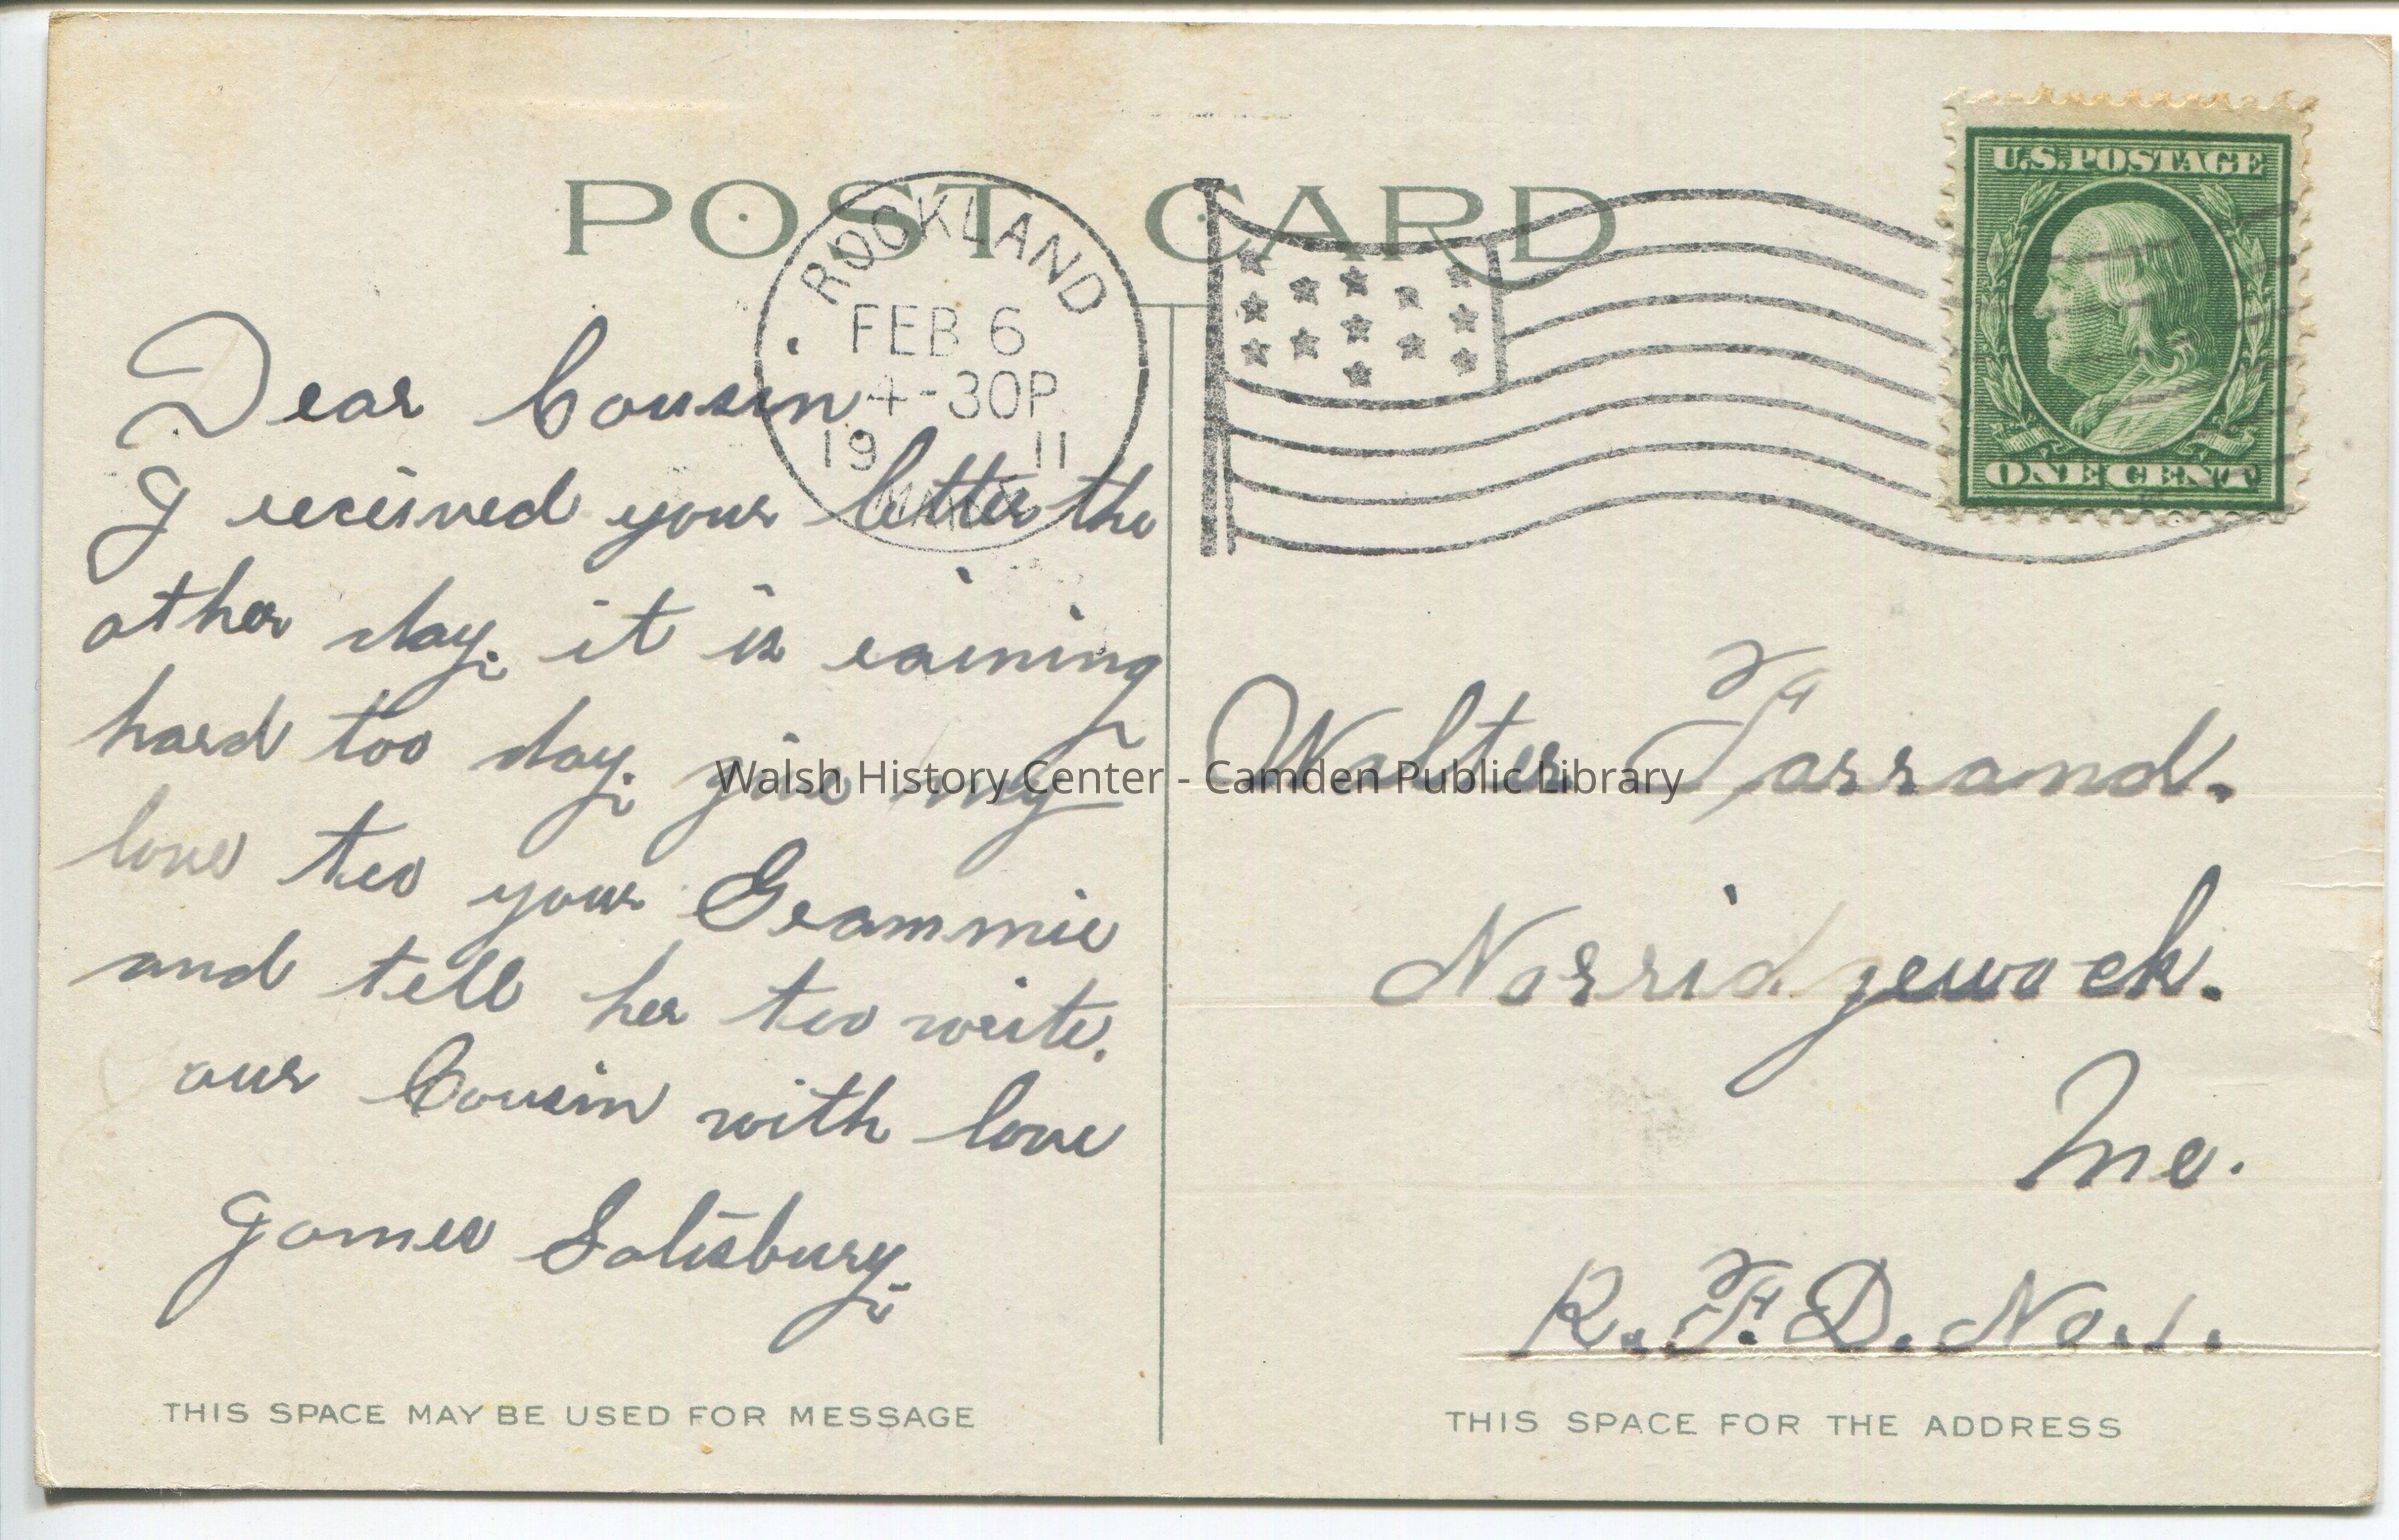 POST CARD
ROCKLAND
FEB 6
4-30P
19 11
U.S. POSTAGE
ONE CENT
Dear Cousin
I received your letter the
other day. it is raining
hard too day. give my
love too your Grammie
and tell her too write.
our Cousin with love
James Salisbury.
Walter Farrand.
Norridgewock.
Me.
R. F. D. No. 1.
Walsh History Center - Camden Public Library
THIS SPACE MAY BE USED FOR MESSAGE
THIS SPACE FOR THE ADDRESS